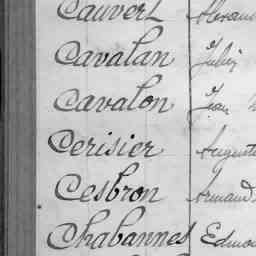 Cauvert
Cavalan Julien
Cavalon Jean
Cerisier Auguste
Cesbron Armand
Chabannes Edmo